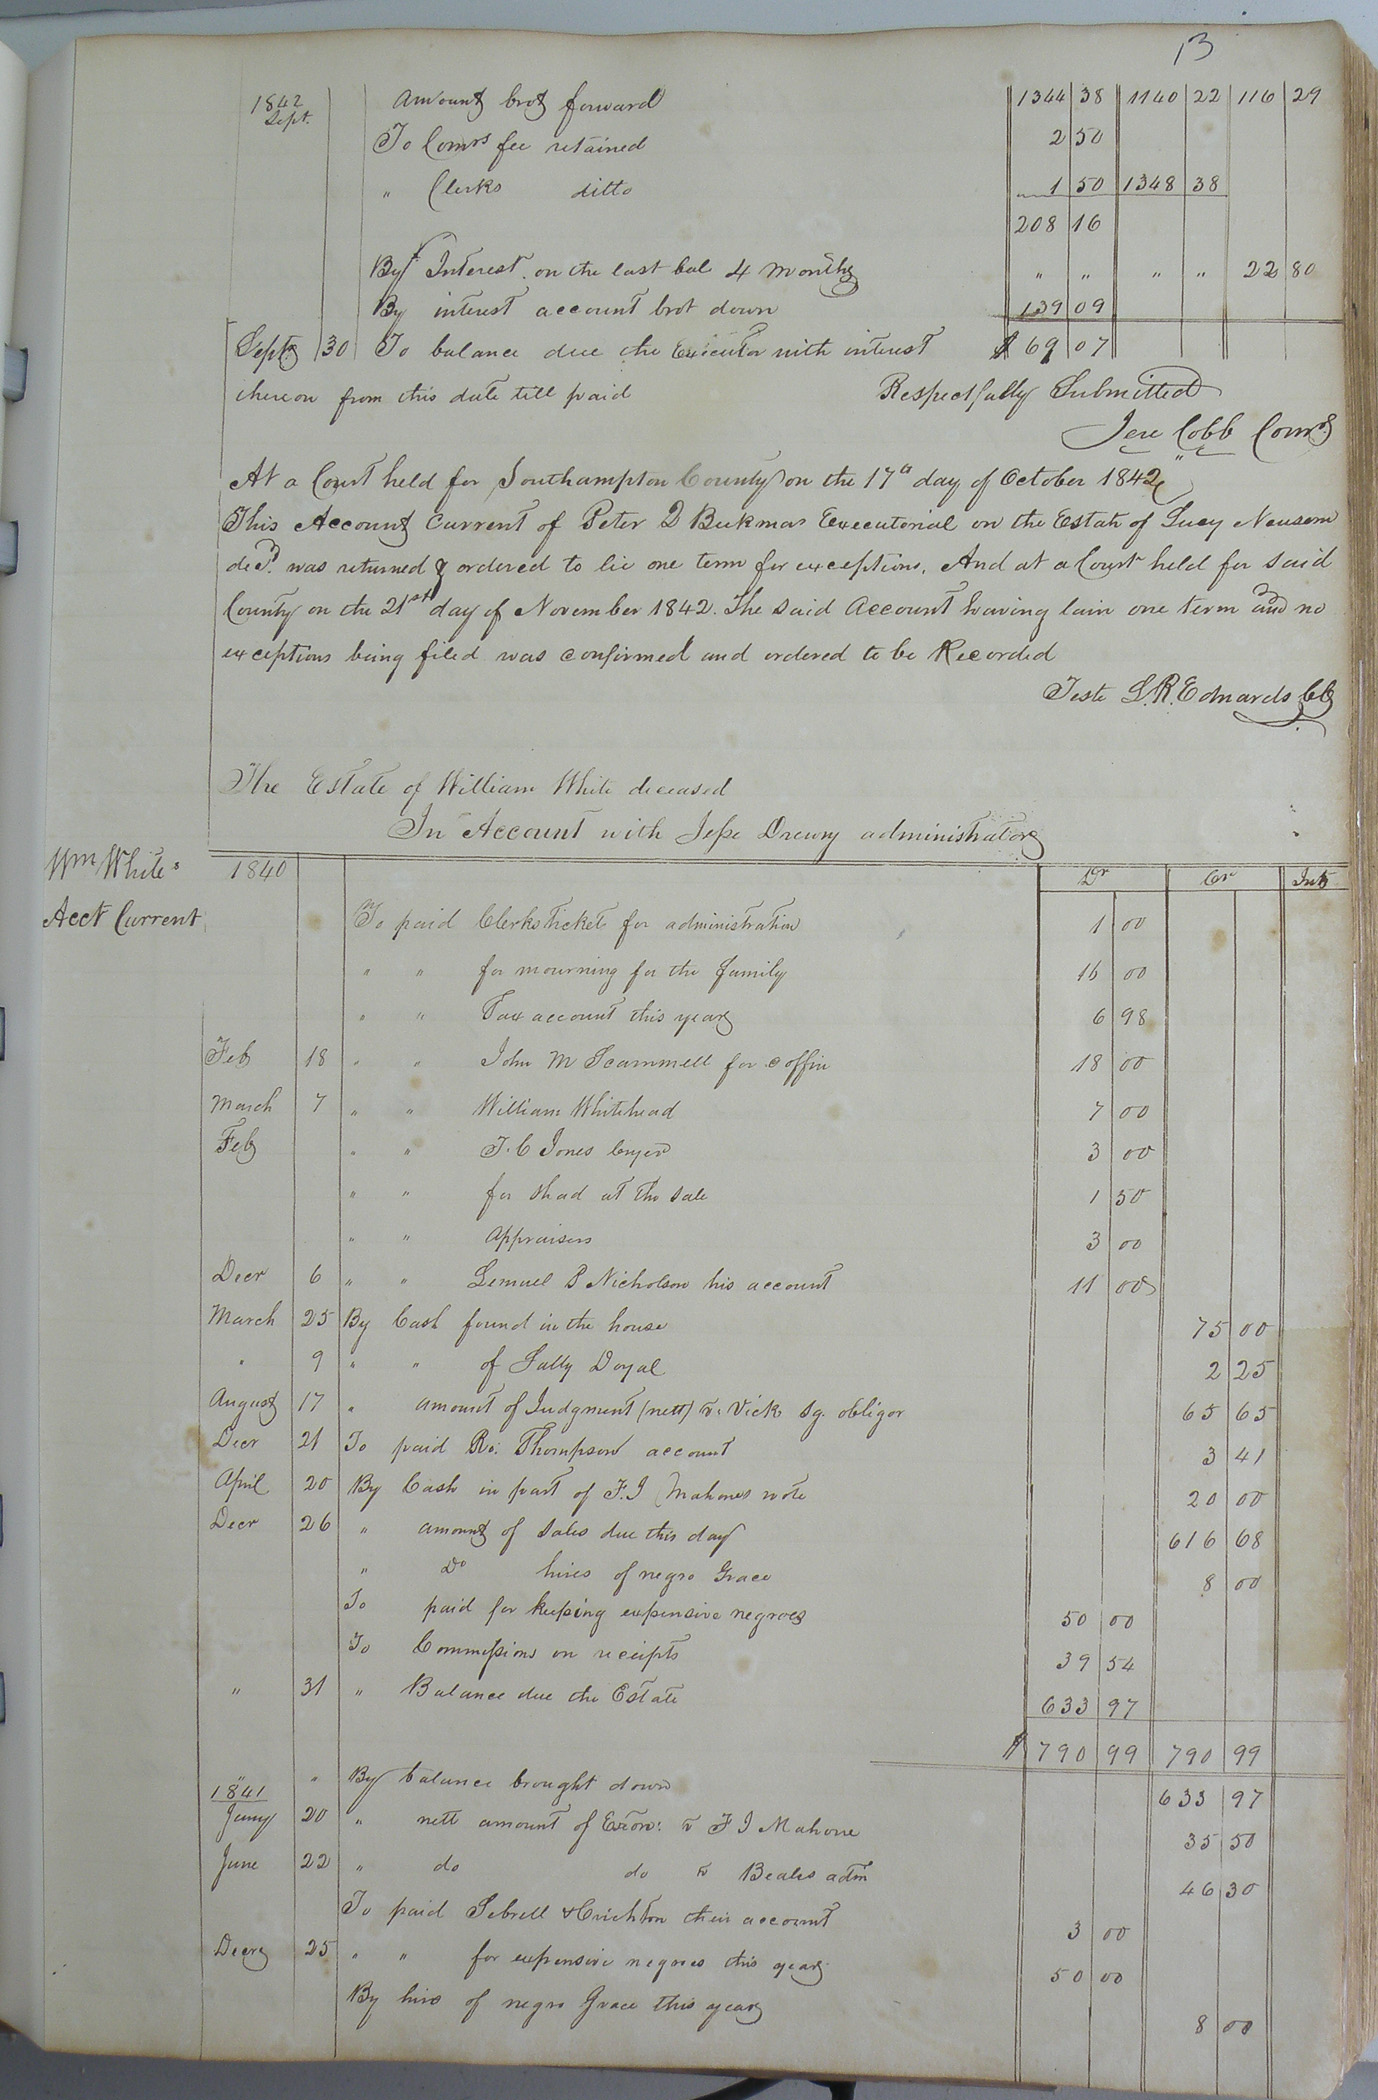 13
1842 Amount brot forward 1344 38 1140 22 116 29
Sept.
To Comrs fee retained 2 50
" Clerks ditto 1 50 1348 38
208 16
By Interest on the last bal 4 months " " " " 22 80
By interest account brot down 139 09
Sept 30 To balance due the Executor with interest $ 69 07
thereon from this date till paid Respectfully Submitted
Jere Cobb Comr
At a Court held for Southampton County on the 17th day of October 1842
This Account Current of Peter D Beekmas Executorial on the Estate of Lucy Newsom
decd. was returned & ordered to lie one term for exceptions. And at a Court held for said
County on the 21st day of November 1842. The said Account having lain one term and no
exceptions being filed was confirmed and ordered to be Recorded
Teste L.R. Edwards CC
The Estate of William White deceased
In Account with Jesse Drewry administrator
Wm White's
Acct Current
1840 Dr Cr Int
To paid Clerks ticket for administration 1 00
" " for mourning for the family 16 00
" " Tax account this year 6 98
Feb 18 " " John M Scammell for coffin 18 00
March 7 " " William Whitehead 7 00
Feb " " T. C Jones cryer 3 00
" " for shad at the sale 1 50
" " Appraisers 3 00
Decr 6 " " Lemuel P Nicholson his account 11 00
March 25 By Cash found in the house 75 00
" 9 " " of Sally Doyal 2 25
August 17 " amount of Judgment (nett) v. Vick sg. obligor 65 65
Decr 21 To paid Ro. Thompson account 3 41
April 20 By Cash in part of F. J Mahones note 20 00
Decr 26 " amount of sales due this day 616 68
" Do hires of negro Grace 8 00
To paid for keeping expensive negroes 50 00
To Commissions on receipts 39 54
" 31 " Balance due the Estate 633 97
$ 790 99 790 99
" " By balance brought down 633 97
1841
Jany 20 " nett amount of Exon. v F J Mahone 35 50
June 22 " do do v Beales adm 46 30
To paid Sebrell & Crichton their account 3 00
Decr 25 " " for expensive negroes this year 50 00
By hire of negro Grace this year 8 00